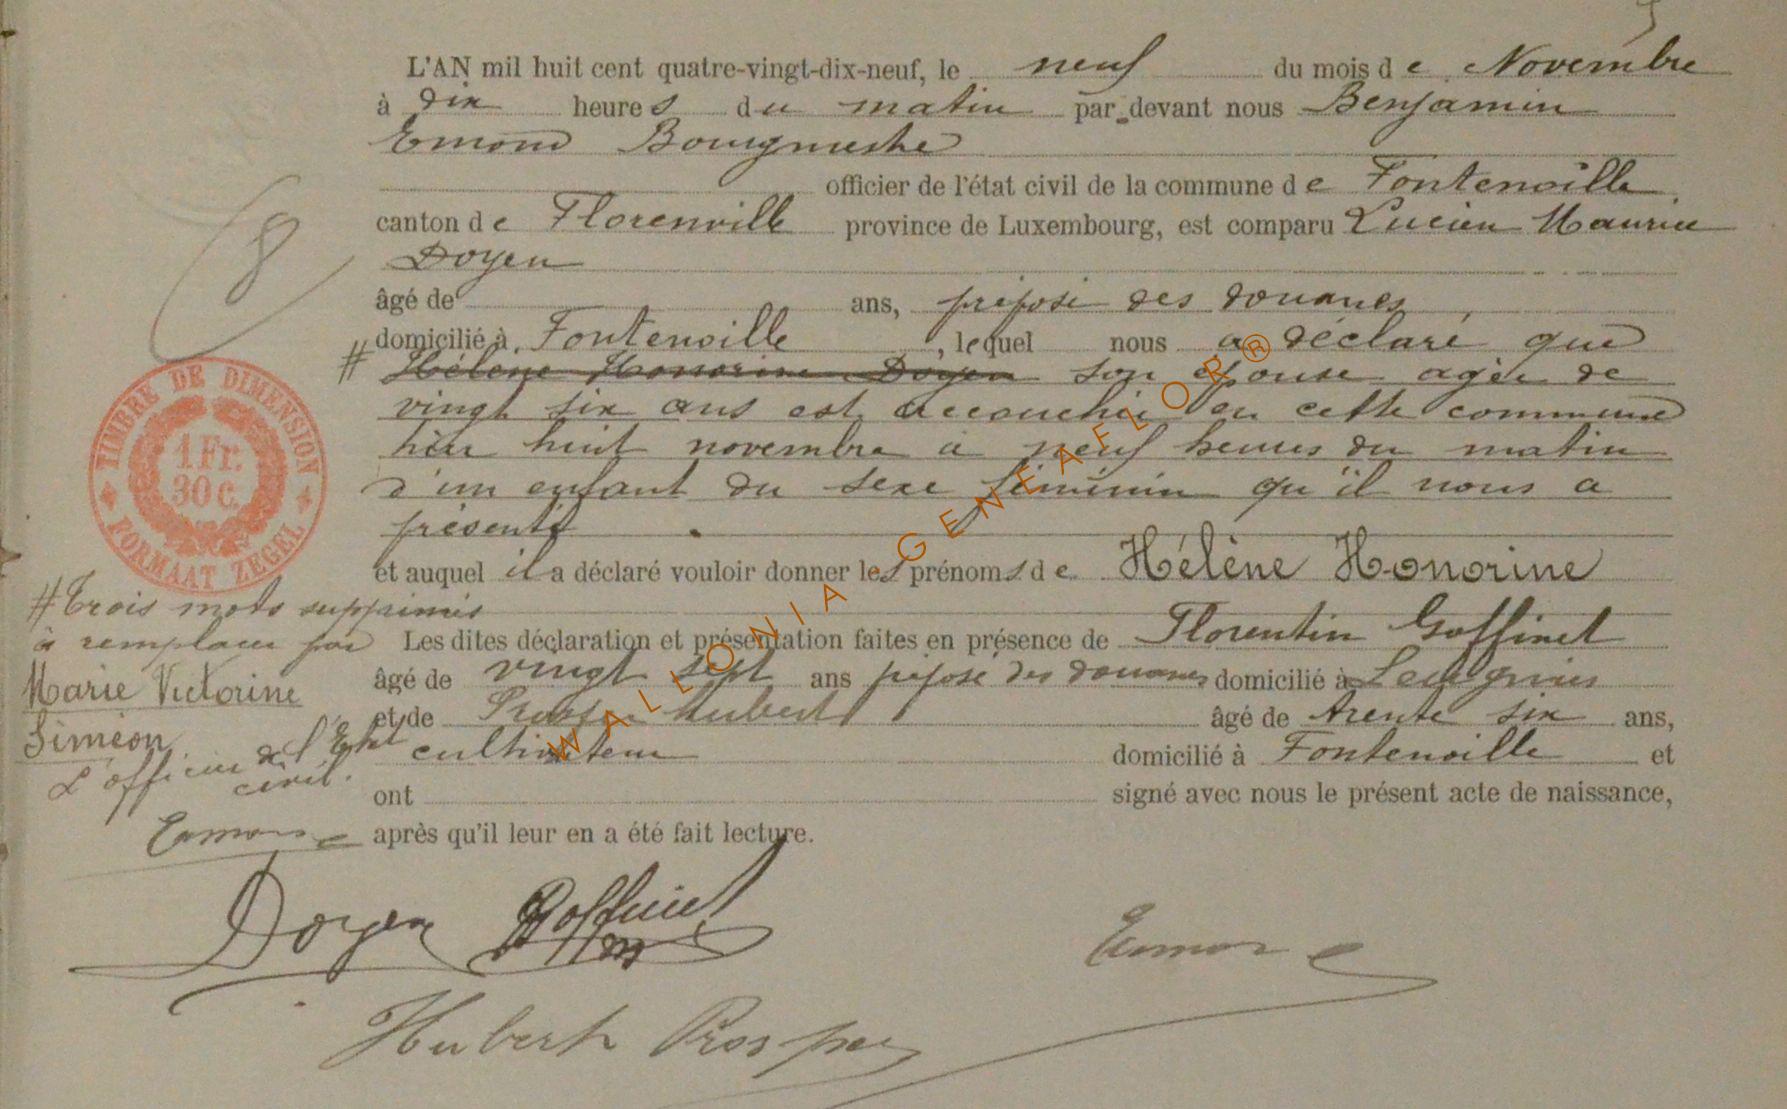 L'AN mil huit cent quatre-vingt-dix-neuf, le neuf du mois de Novembre
à dix heures du matin par devant nous Benjamin
Emond Bourgmestre
officier de l'état civil de la commune de Fontenoille
canton de Florenville province de Luxembourg, est comparu Lucien Maurice
Doyen
âgé de ans, préposé des douanes
domicilié à Fontenoille, lequel nous a déclaré que
# Hélène Honorine Doyen son épouse agée de
vingt six ans est accouchée en cette commune
hier huit novembre à neuf heures du matin
d'un enfant du sexe féminin qu'il nous a
présenté
et auquel il a déclaré vouloir donner les prénoms de Hélène Honorine
Les dites déclaration et présentation faites en présence de Florentin Goffinet
âgé de vingt sept ans préposé des douanes domicilié à
et de Prosper Hubert âgé de trente six ans,
cultivateur domicilié à Fontenoille et
ont signé avec nous le présent acte de naissance,
après qu'il leur en a été fait lecture.
8
TIMBRE DE DIMENSION
1 Fr.
30 C.
FORMAAT ZEGEL
# Trois mots supprimés
à remplacer par
Marie Victorine
Siméon
L'officier de l'Etat
civil.
Emond
Doyen Goffinet
Emond
Hubert Prosper
WALLONIA GENEAFLOR®